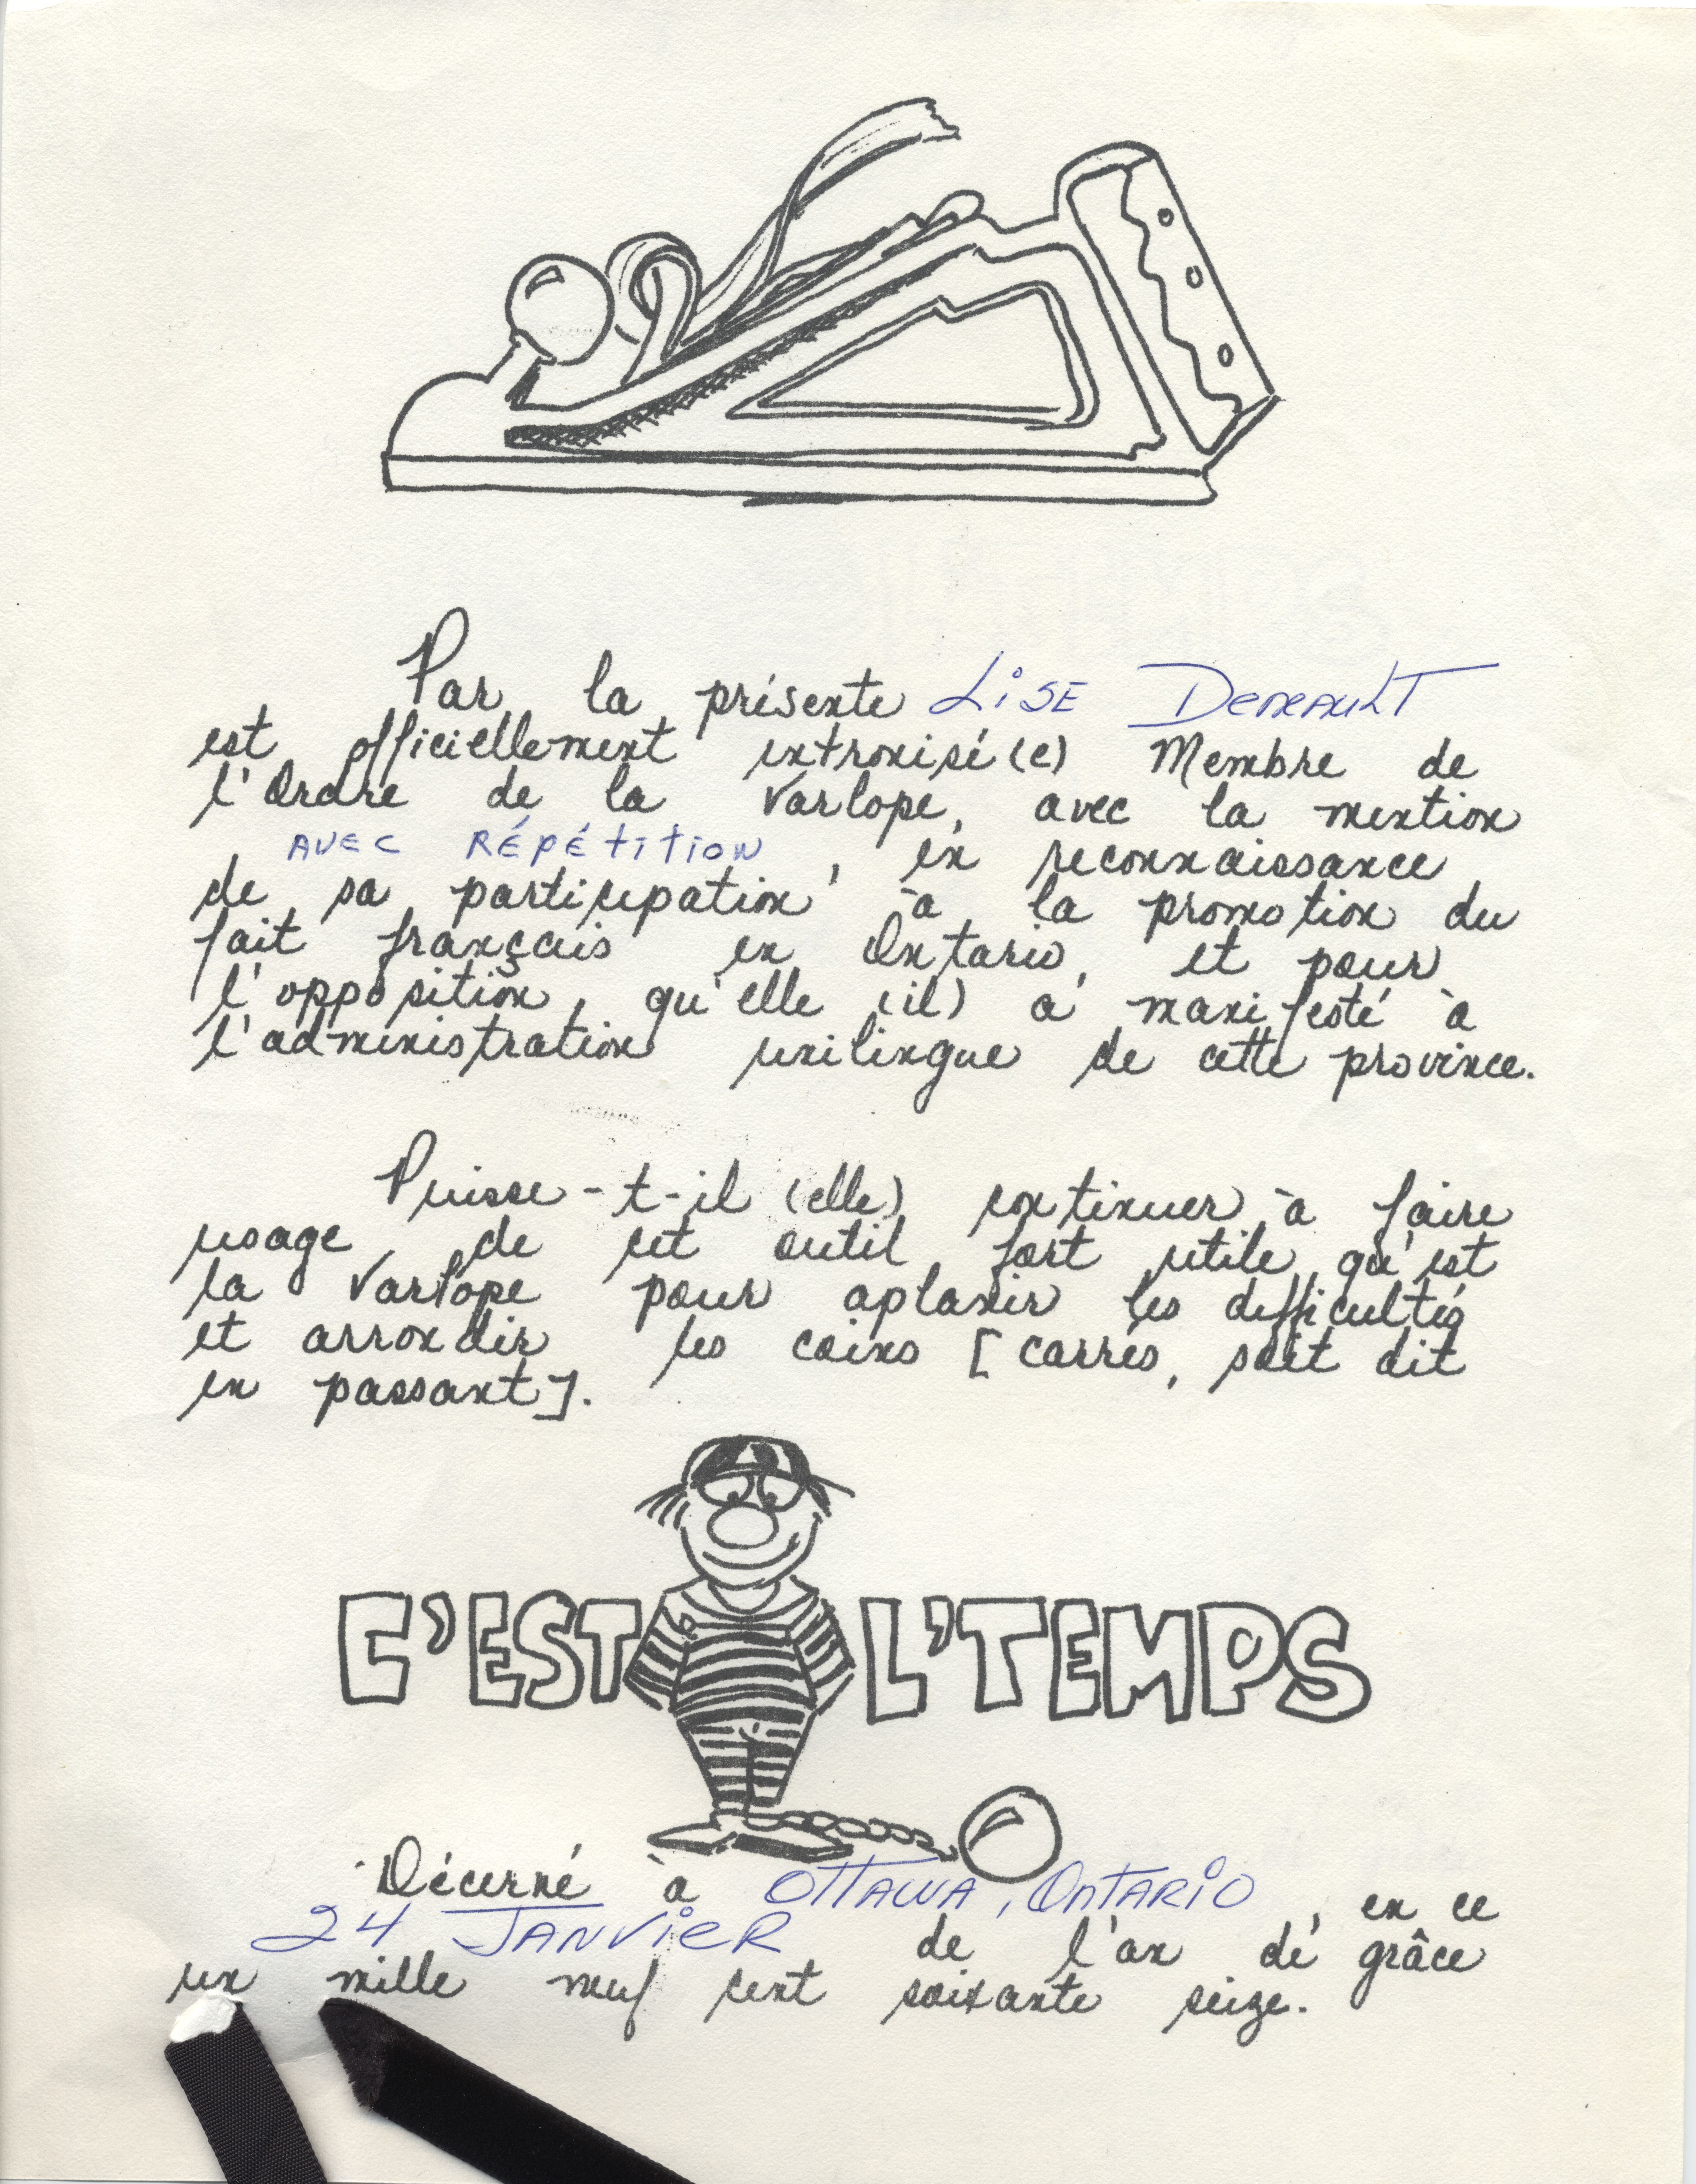 Par la présente LiSE DENEAULT
est officiellement intronisé(e) Membre de
l'Ordre de la Varlope, avec la mention
AVEC RÉPÉtitiON, en reconnaissance
de sa participation à la promotion du
fait français en Ontario, et pour
l'opposition, qu'elle (il) a manifesté à
l'administration unilingue de cette province.
Puisse-t-il (elle) continuer à faire
usage de cet outil fort utile qu'est
la Varlope pour aplanir les difficultés
et arrondir les coins [carrés, soit dit
en passant].
C'EST L'TEMPS
Décerné à OTTAWA, ONTARIO, en ce
24 JANViER de l'an de grâce
un mille neuf cent soixante seize.